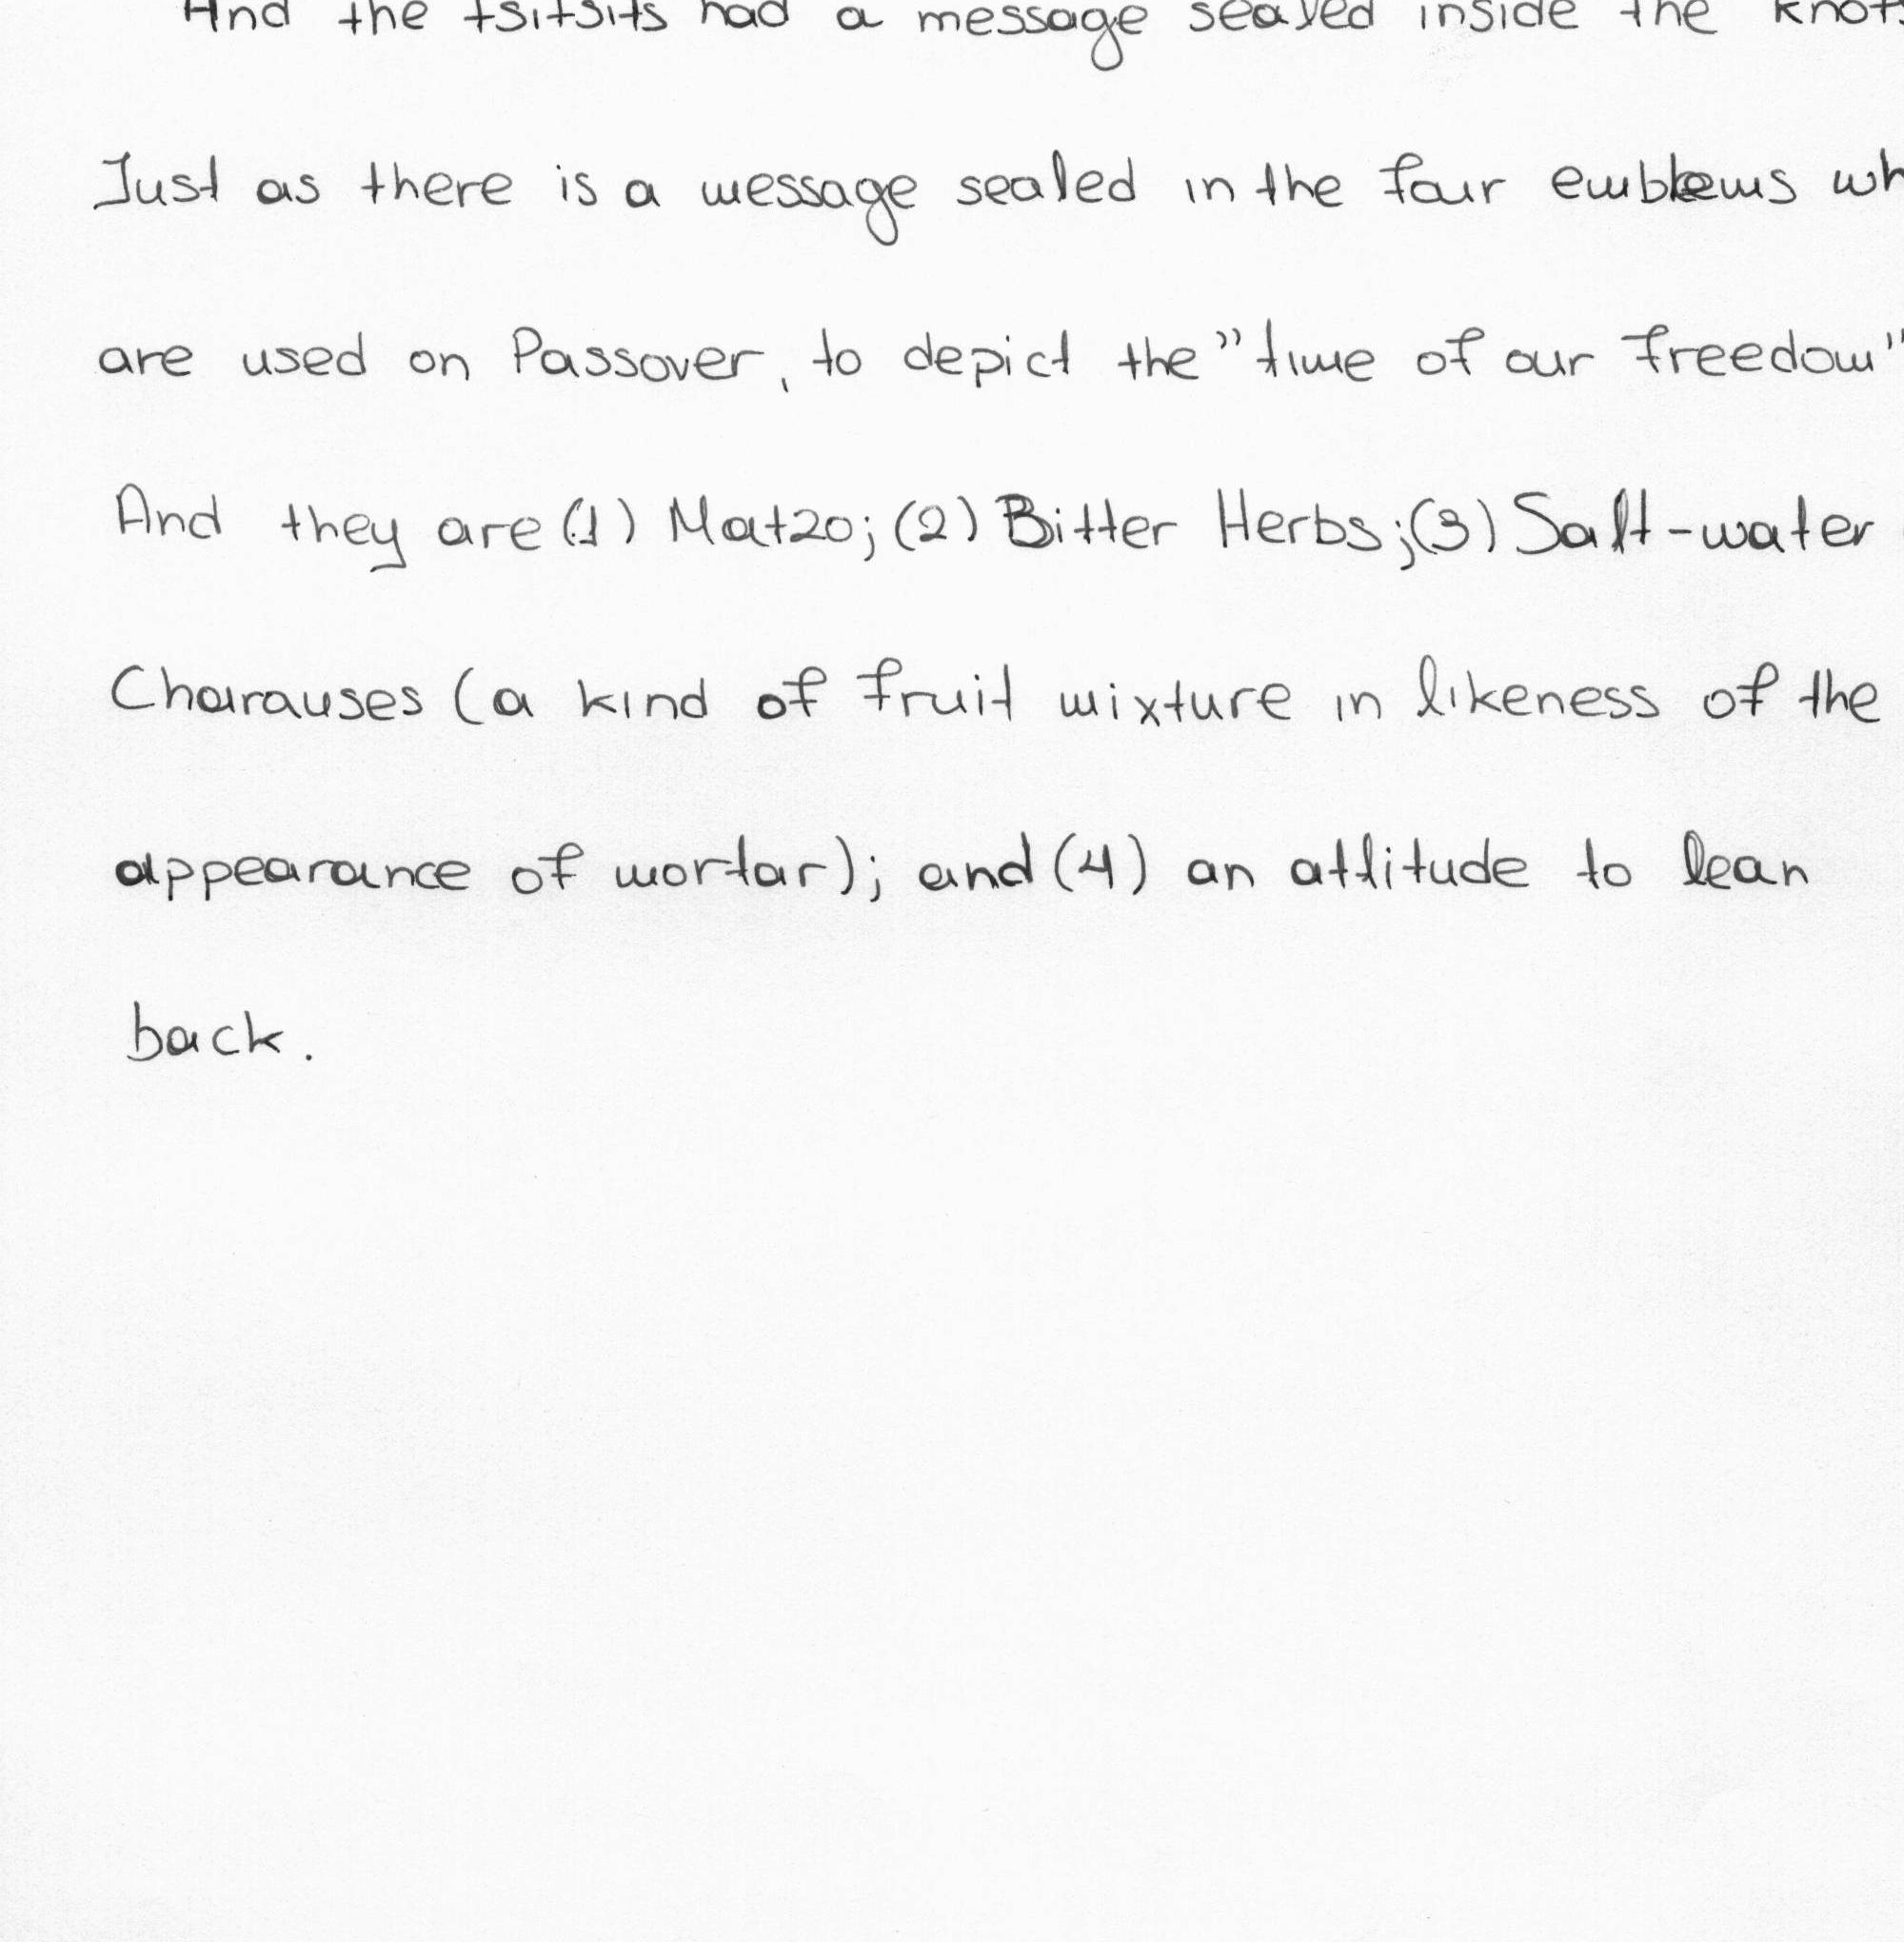 And the tsitsits had a message sealed inside the knots
Just as there is a message sealed in the four emblems wh
are used on Passover, to depict the "time of our freedom"
And they are (1) Matzo; (2) Bitter Herbs; (3) Salt-water
Charauses (a kind of fruit mixture in likeness of the
appearance of mortar); and (4) an attitude to lean
back.